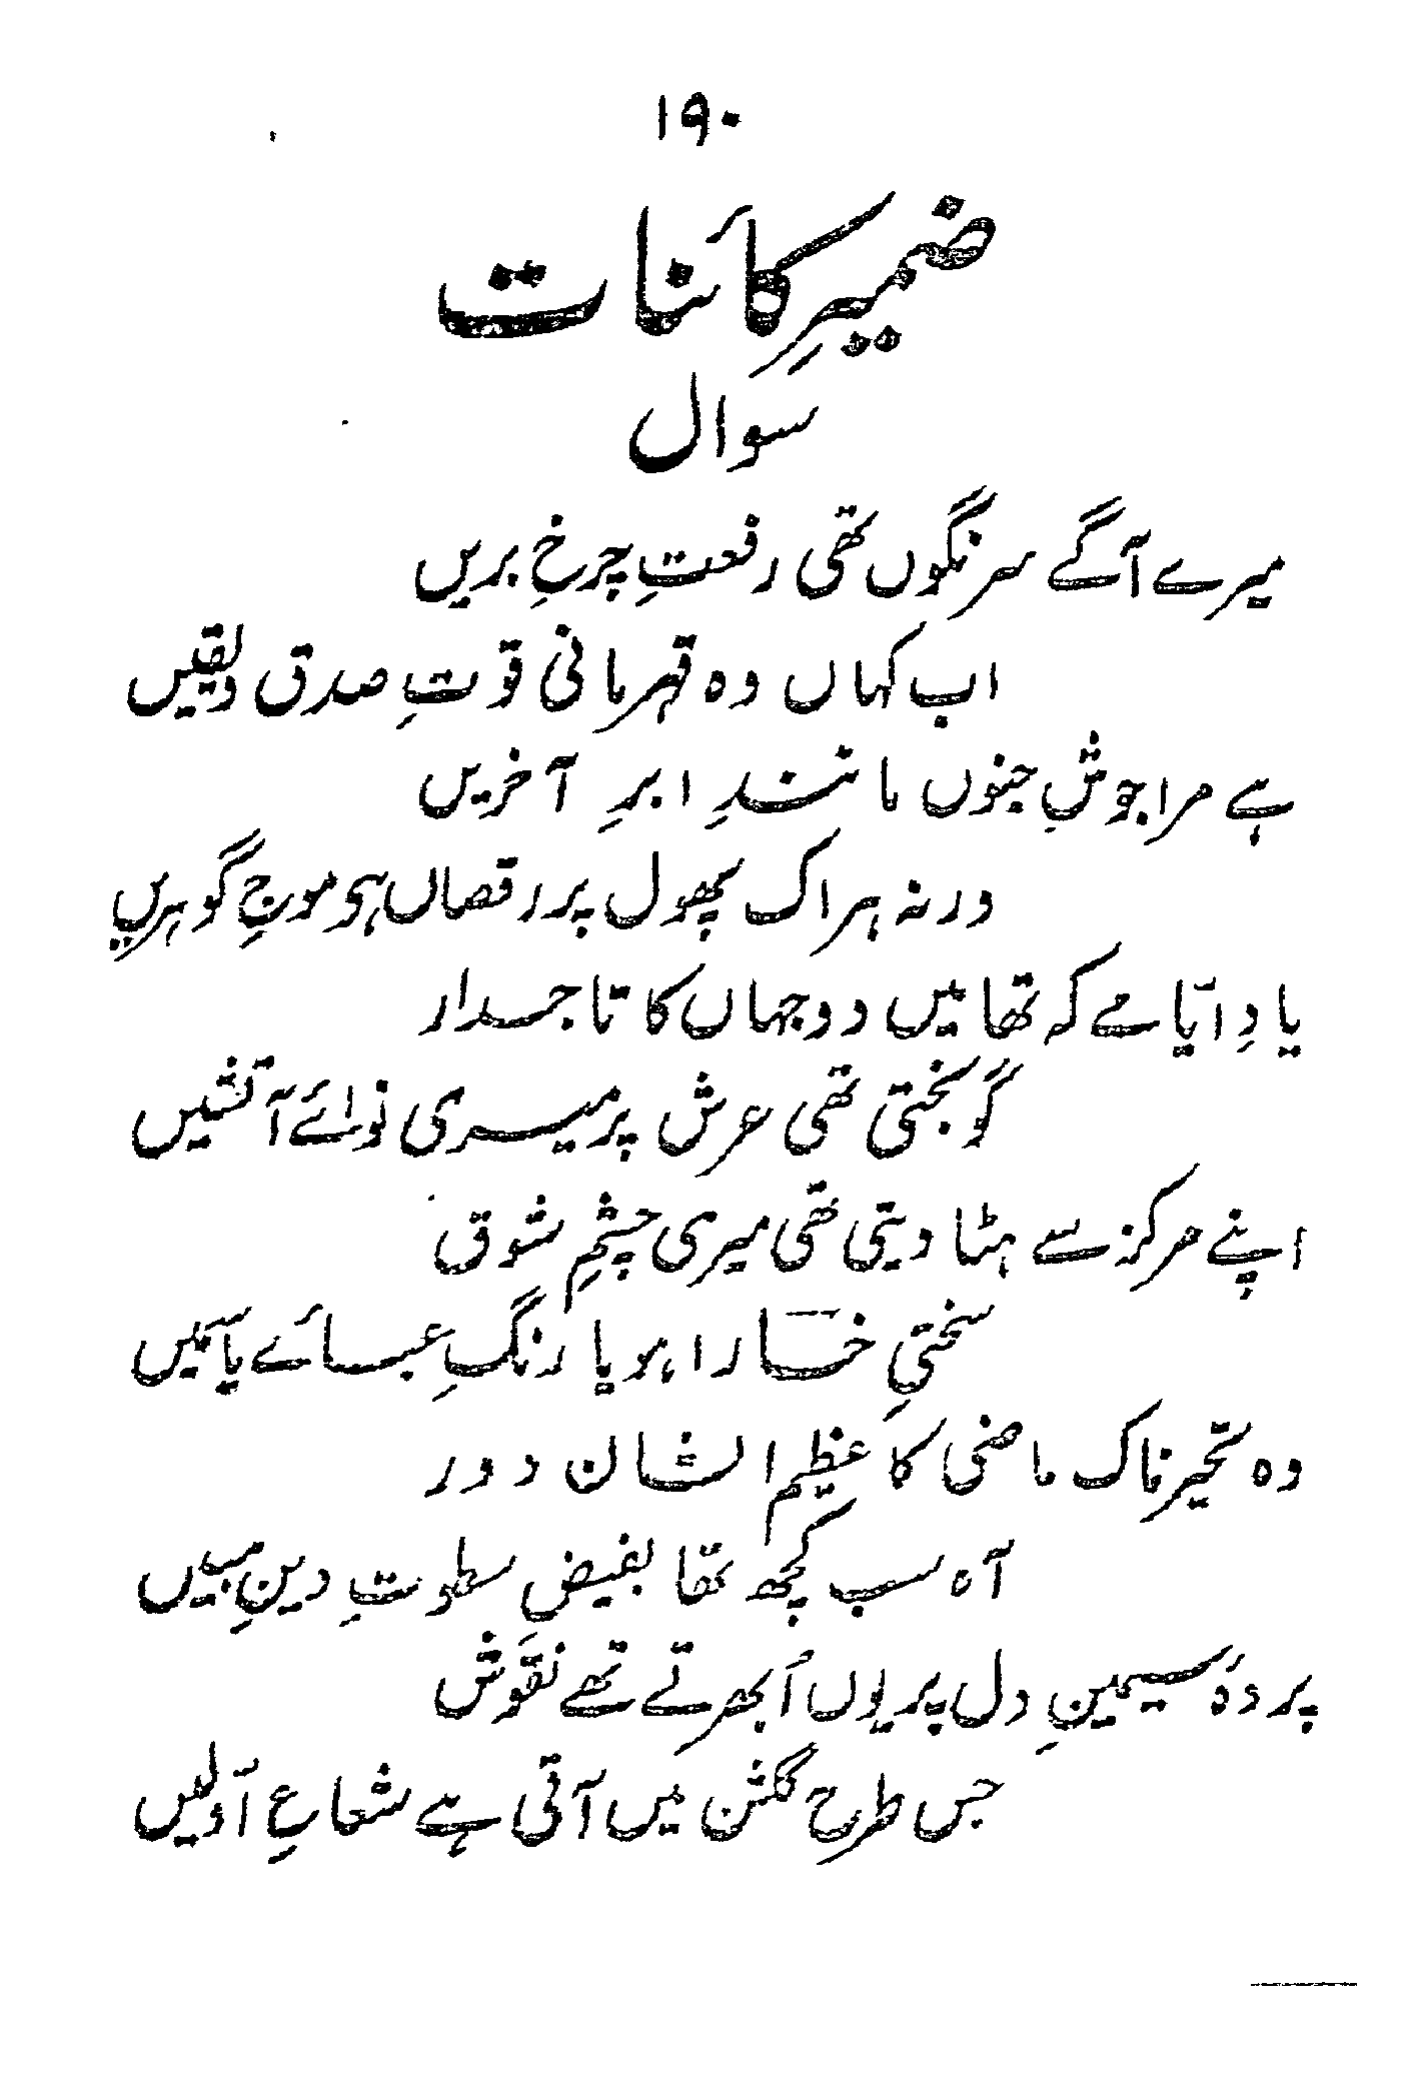 ۱۹۰
ضمیرِ کائنات
سوال
میرے آگے سرنگوں تھی رفعتِ چرخِ بریں
اب کہاں وہ قہرمانی قوّتِ صدق ویقیں
ہے مرا جوشِ جنوں مانندِ ابرِ آخریں
ورنہ ہر اک پھول پر رقصاں ہو موجِ گوہریں
یادِ ایّامے کہ تھا میں دوجہاں کا تاجدار
گونجتی تھی عرش پر میری نوائے آتشیں
اپنے مرکز سے ہٹا دیتی تھی میری چشمِ شوق
سختیِ خارا ہو یا رنگِ عبائے یاسمیں
وہ تحیرناک ماضی کا عظیم الشان دور
آہ سب کچھ تھا بفیضِ سطوتِ دینِ مبیں
پردۂ سیمینِ دل پر یوں اُبھرتے تھے نقوش
جس طرح گلشن میں آتی ہے شعاعِ اوّلیں